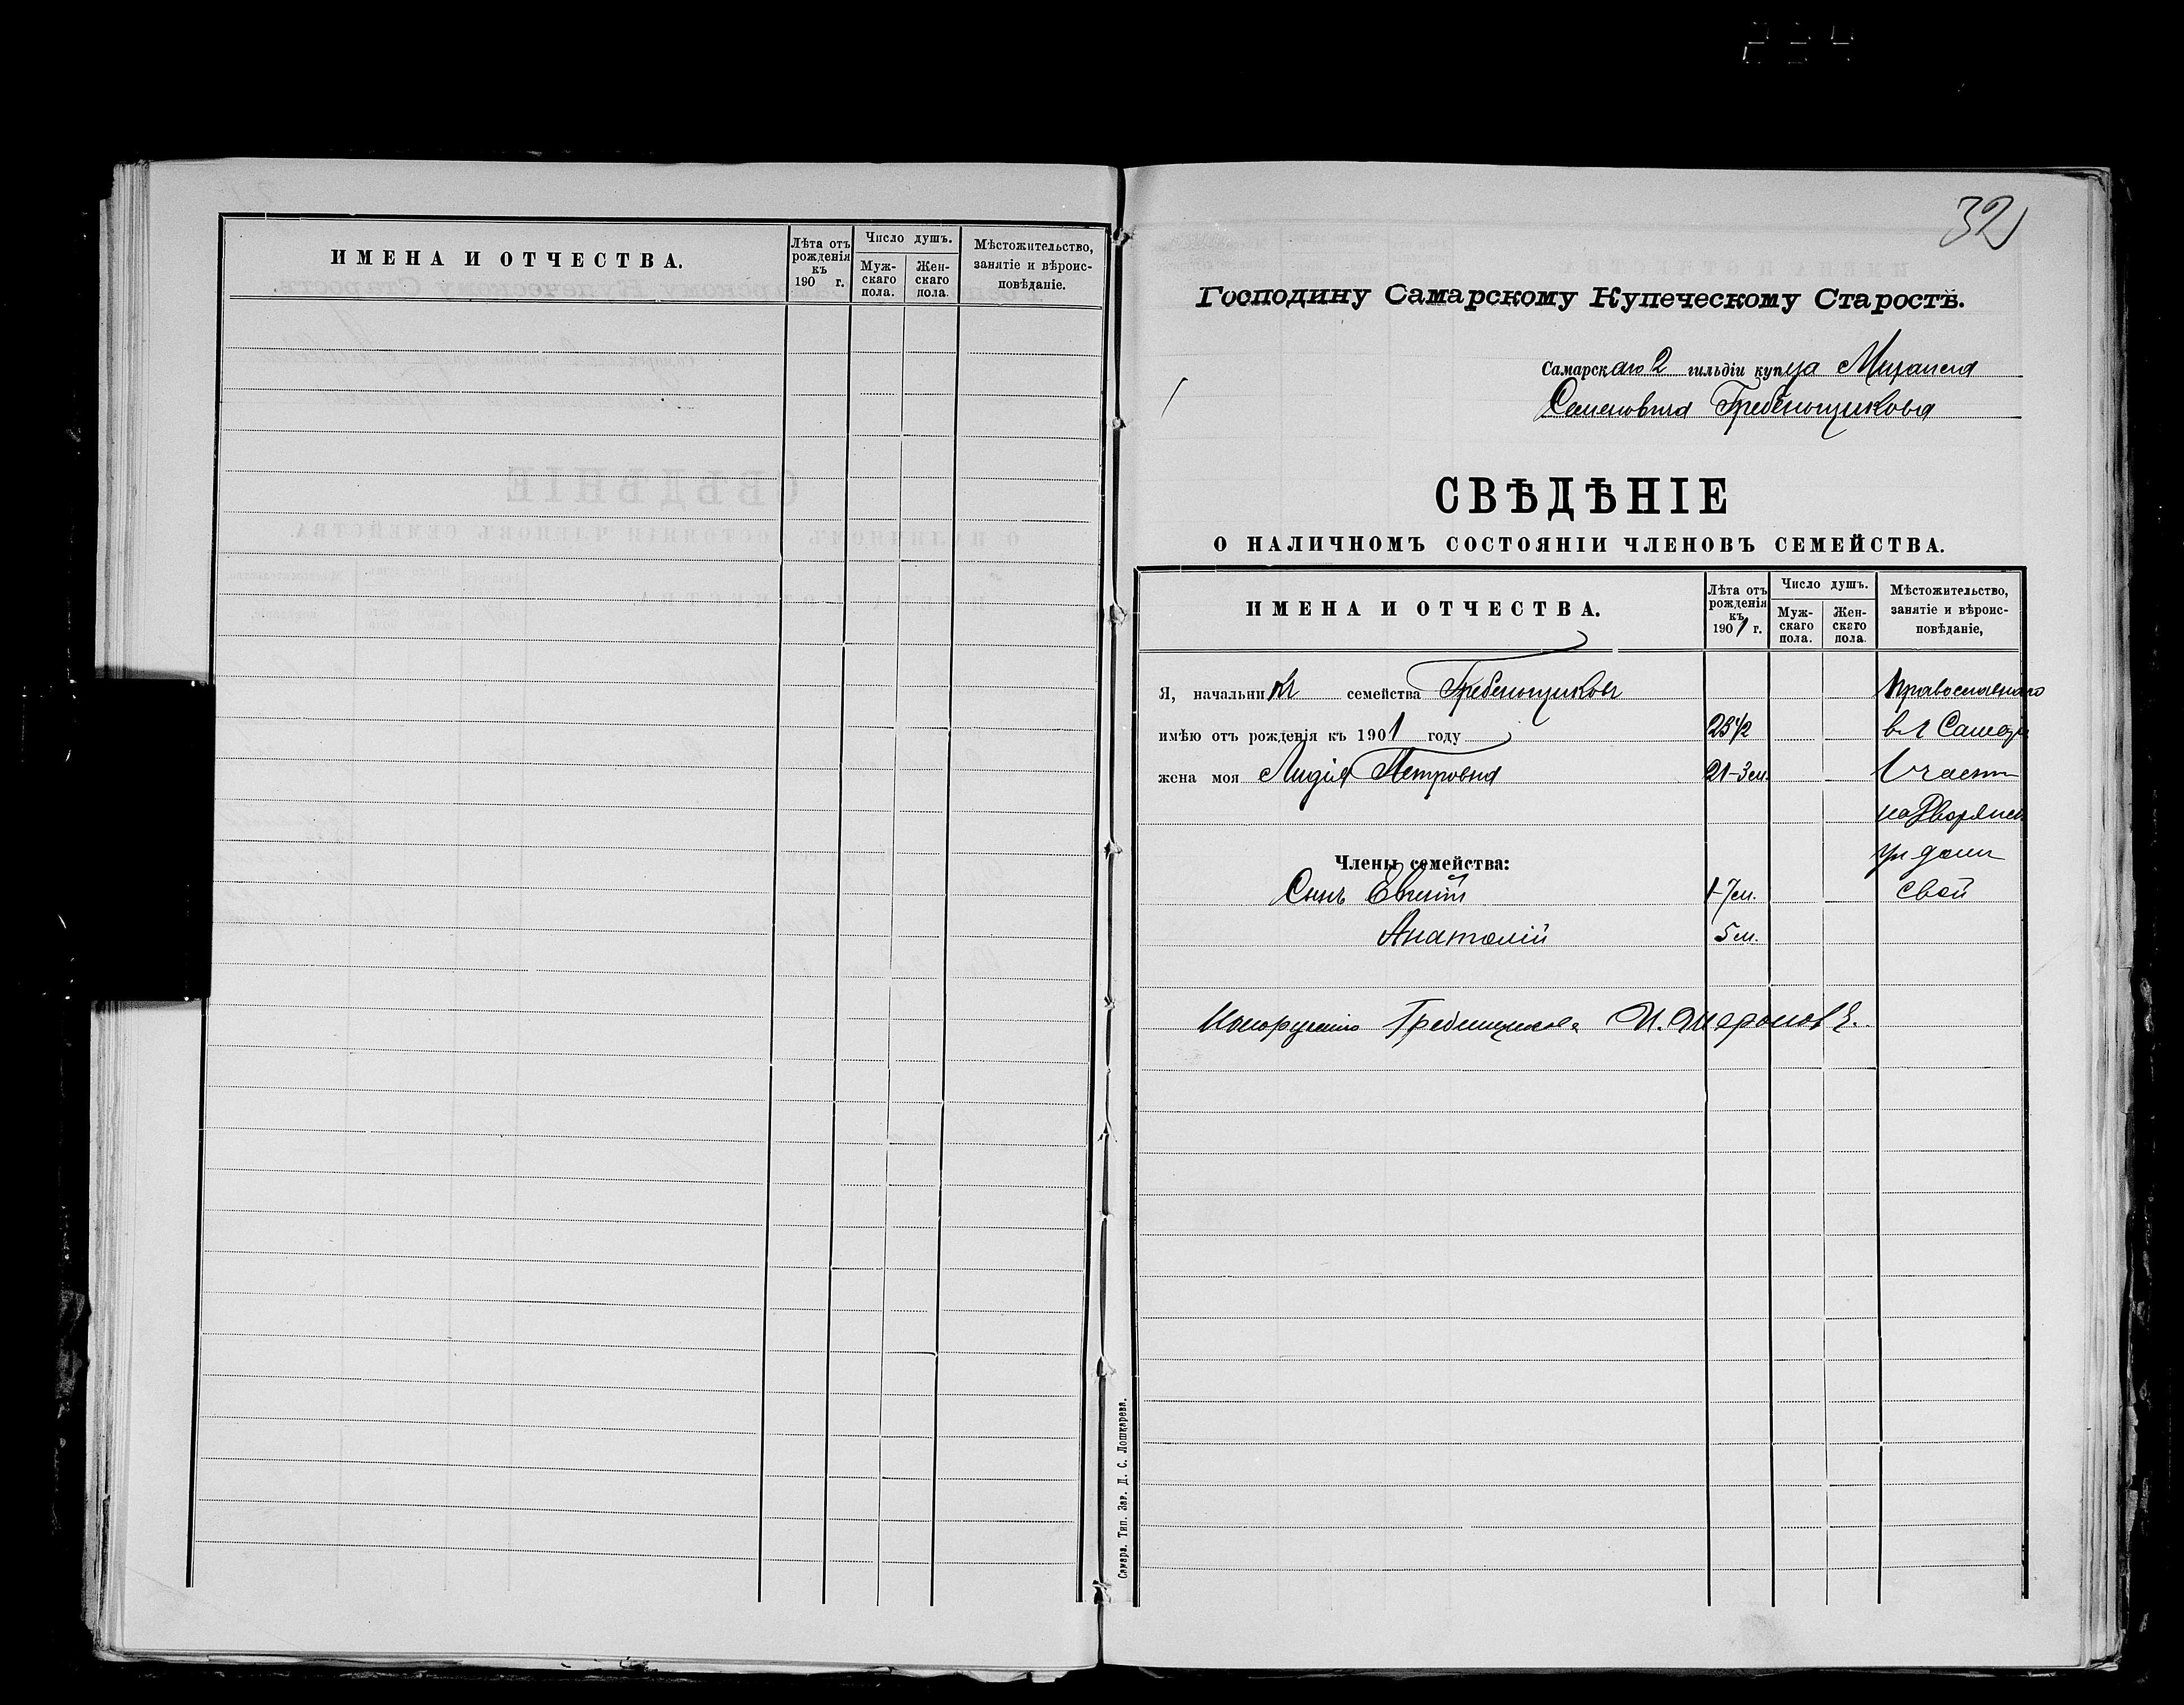 ИМЕНА И ОТЧЕСТВА.
Лѣта отъ рожденія къ 190 г.
Число душъ.
Мужскаго пола.
Женскаго пола.
Мѣстожительство, занятіе и вѣроисповѣданіе.
32
Господину Самарскому Купеческому Старостѣ.
Самарскаго 2 гильдіи купца Михаила
Семеновича Гребенщикова
СВѢДѢНІЕ
О НАЛИЧНОМЪ СОСТОЯНІИ ЧЛЕНОВЪ СЕМЕЙСТВА.
ИМЕНА И ОТЧЕСТВА.
Лѣта отъ рожденія къ 1901 г.
Число душъ.
Мужскаго пола.
Женскаго пола.
Мѣстожительство, занятіе и вѣроисповѣданіе,
Я, начальникъ семейства Гребенщиковъ Православнаго
имѣю отъ рожденія къ 1901 году 23 1/2 въ г Самарѣ
жена моя Лидія Петровна 21-3 м. 1 части
на Дворянск
Члены семейства: ул домъ
Сынъ Евгеній 1-7 м. свой
Анатолій 5 м.
Гребенщикова
Самара. Тип. Зав. Д. С. Лошкарева.